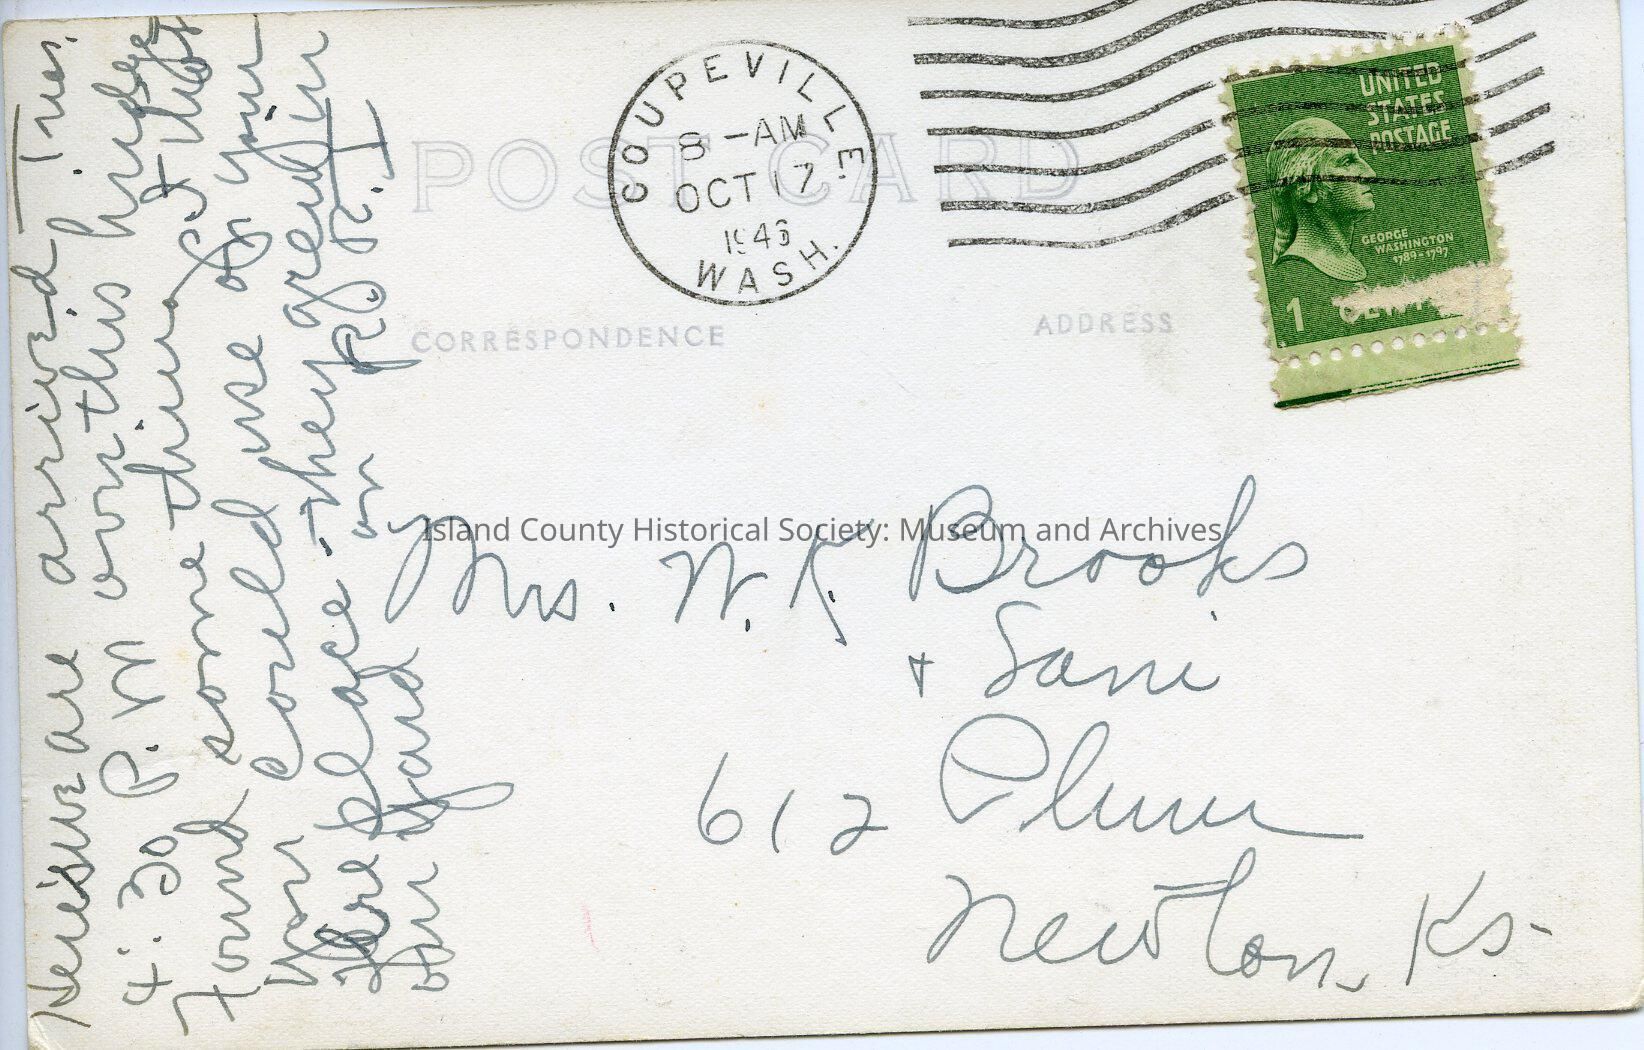 Here we are arrived Tues.
4:20 P.M. over this bridge
Found some things I that
you could use of you
were place - they grew in
our yard on R.R.I.
POST CARD
COUPEVILLE
8 -AM
OCT 17
194
WASH.
UNITED
STATES
POSTAGE
GEORGE
WASHINGTON
1789-1797
1
CORRESPONDENCE
ADDRESS
Island County Historical Society: Museum and Archives
Mrs. W. K. Brooks
+
612 Plum
Newton, Ks.